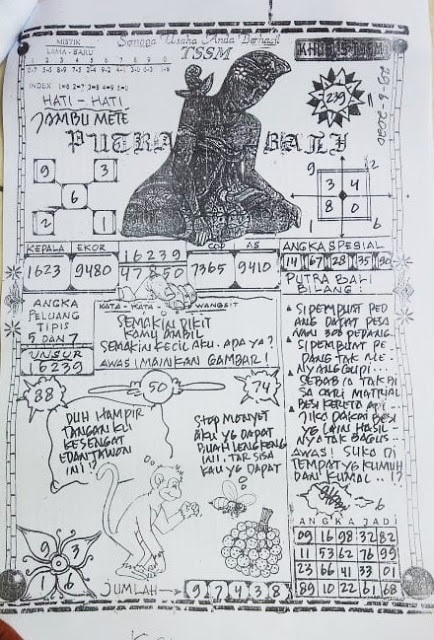 MISTIK
LAMA - BARU
1 2 3 4 5 6 7 8 9 0
Semoga Usaha Anda Berhasil
TSSM
29-6-2020
239
HATI - HATI
JAMBU METE
PUTRA BALI
9 3
6
2 1
9 2
3 4
8 0
1 6
KEPALA EKOR
1623 9480
16239
47850
COP AS
7365 9410
ANGKA SPESIAL
14 67 28 35 90
ANGKA
PELUANG
TIPIS
5 DAN 7
UNSUR
16239
KATA - KATA WANGSIT
SEMAKIN DIKIT
KAMU AMBIL
SEMAKIN KECIL AKU. APA YA?
AWAS! MAINKAN GAMBAR!
PUTRA BALI
BILANG:
SI PEMBUAT PED
ANG DAPAT PESA
NAN 300 PEDANG.
SI PEMBUAT PE
DANG TAK ME..
NYANGGUPI...
SEBAB IA TAK BI
SA CARI MATRIAL
BESI KERETA API...
JIKO PAKAI BESI
YG LAIN HASIL
NYA TAK BAGUS...
AWAS! SUKO DI
TEMPAT YG KUMUH
DAN KUMAL..!?
88
50
74
DUH HAMPIR
TANGAN KU
KESENGAT
EDAN TAWON
INI!?
STOP MONYET
AKU YG DAPAT
BUAH LENGKENG
INI. TAR SISA
KAU YG DAPAT
9 3
1 6
ANGKA JADI
09 16 98 32 82
11 53 62 76 99
23 66 41 33 01
89 10 22 61 68
JUMLAH 9 7 4 3 8